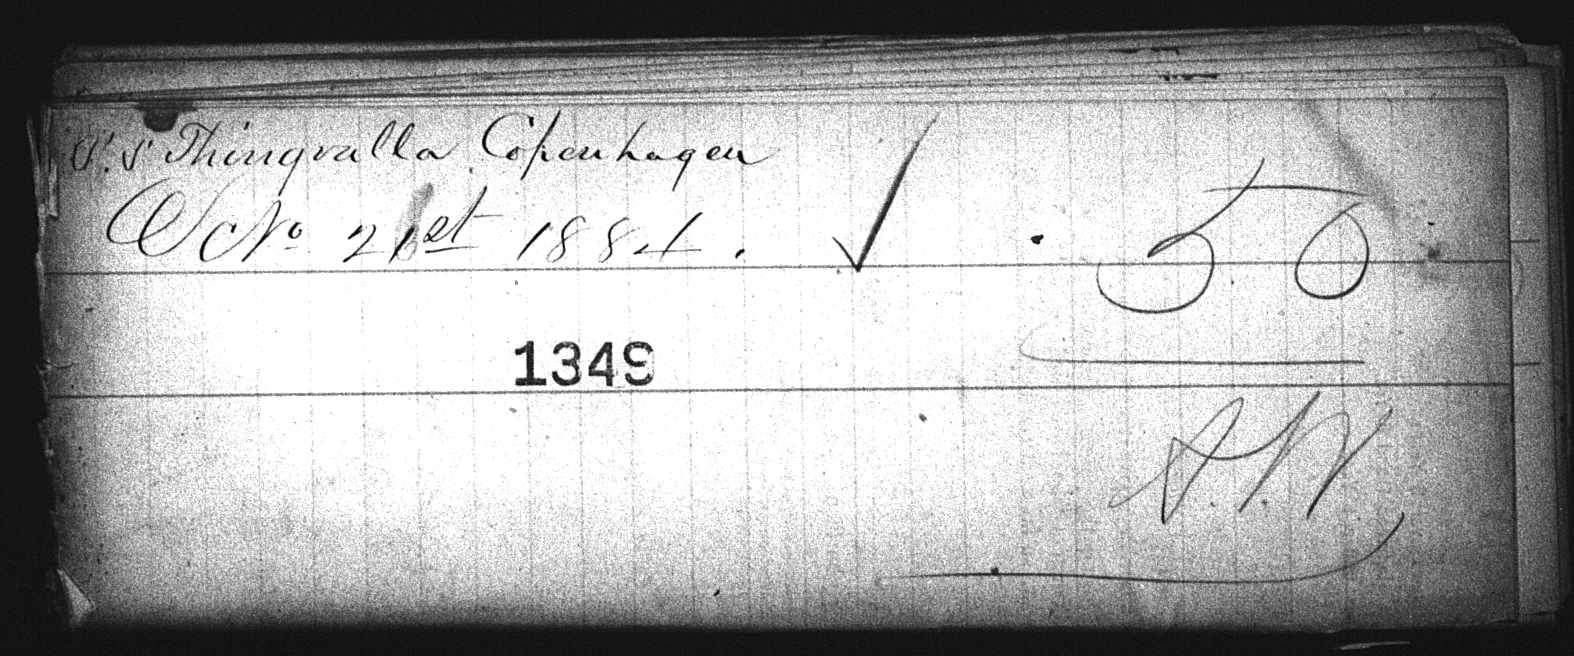 S.S Thingvalla Copenhagen
Oct No 21st 1884. 50
1349